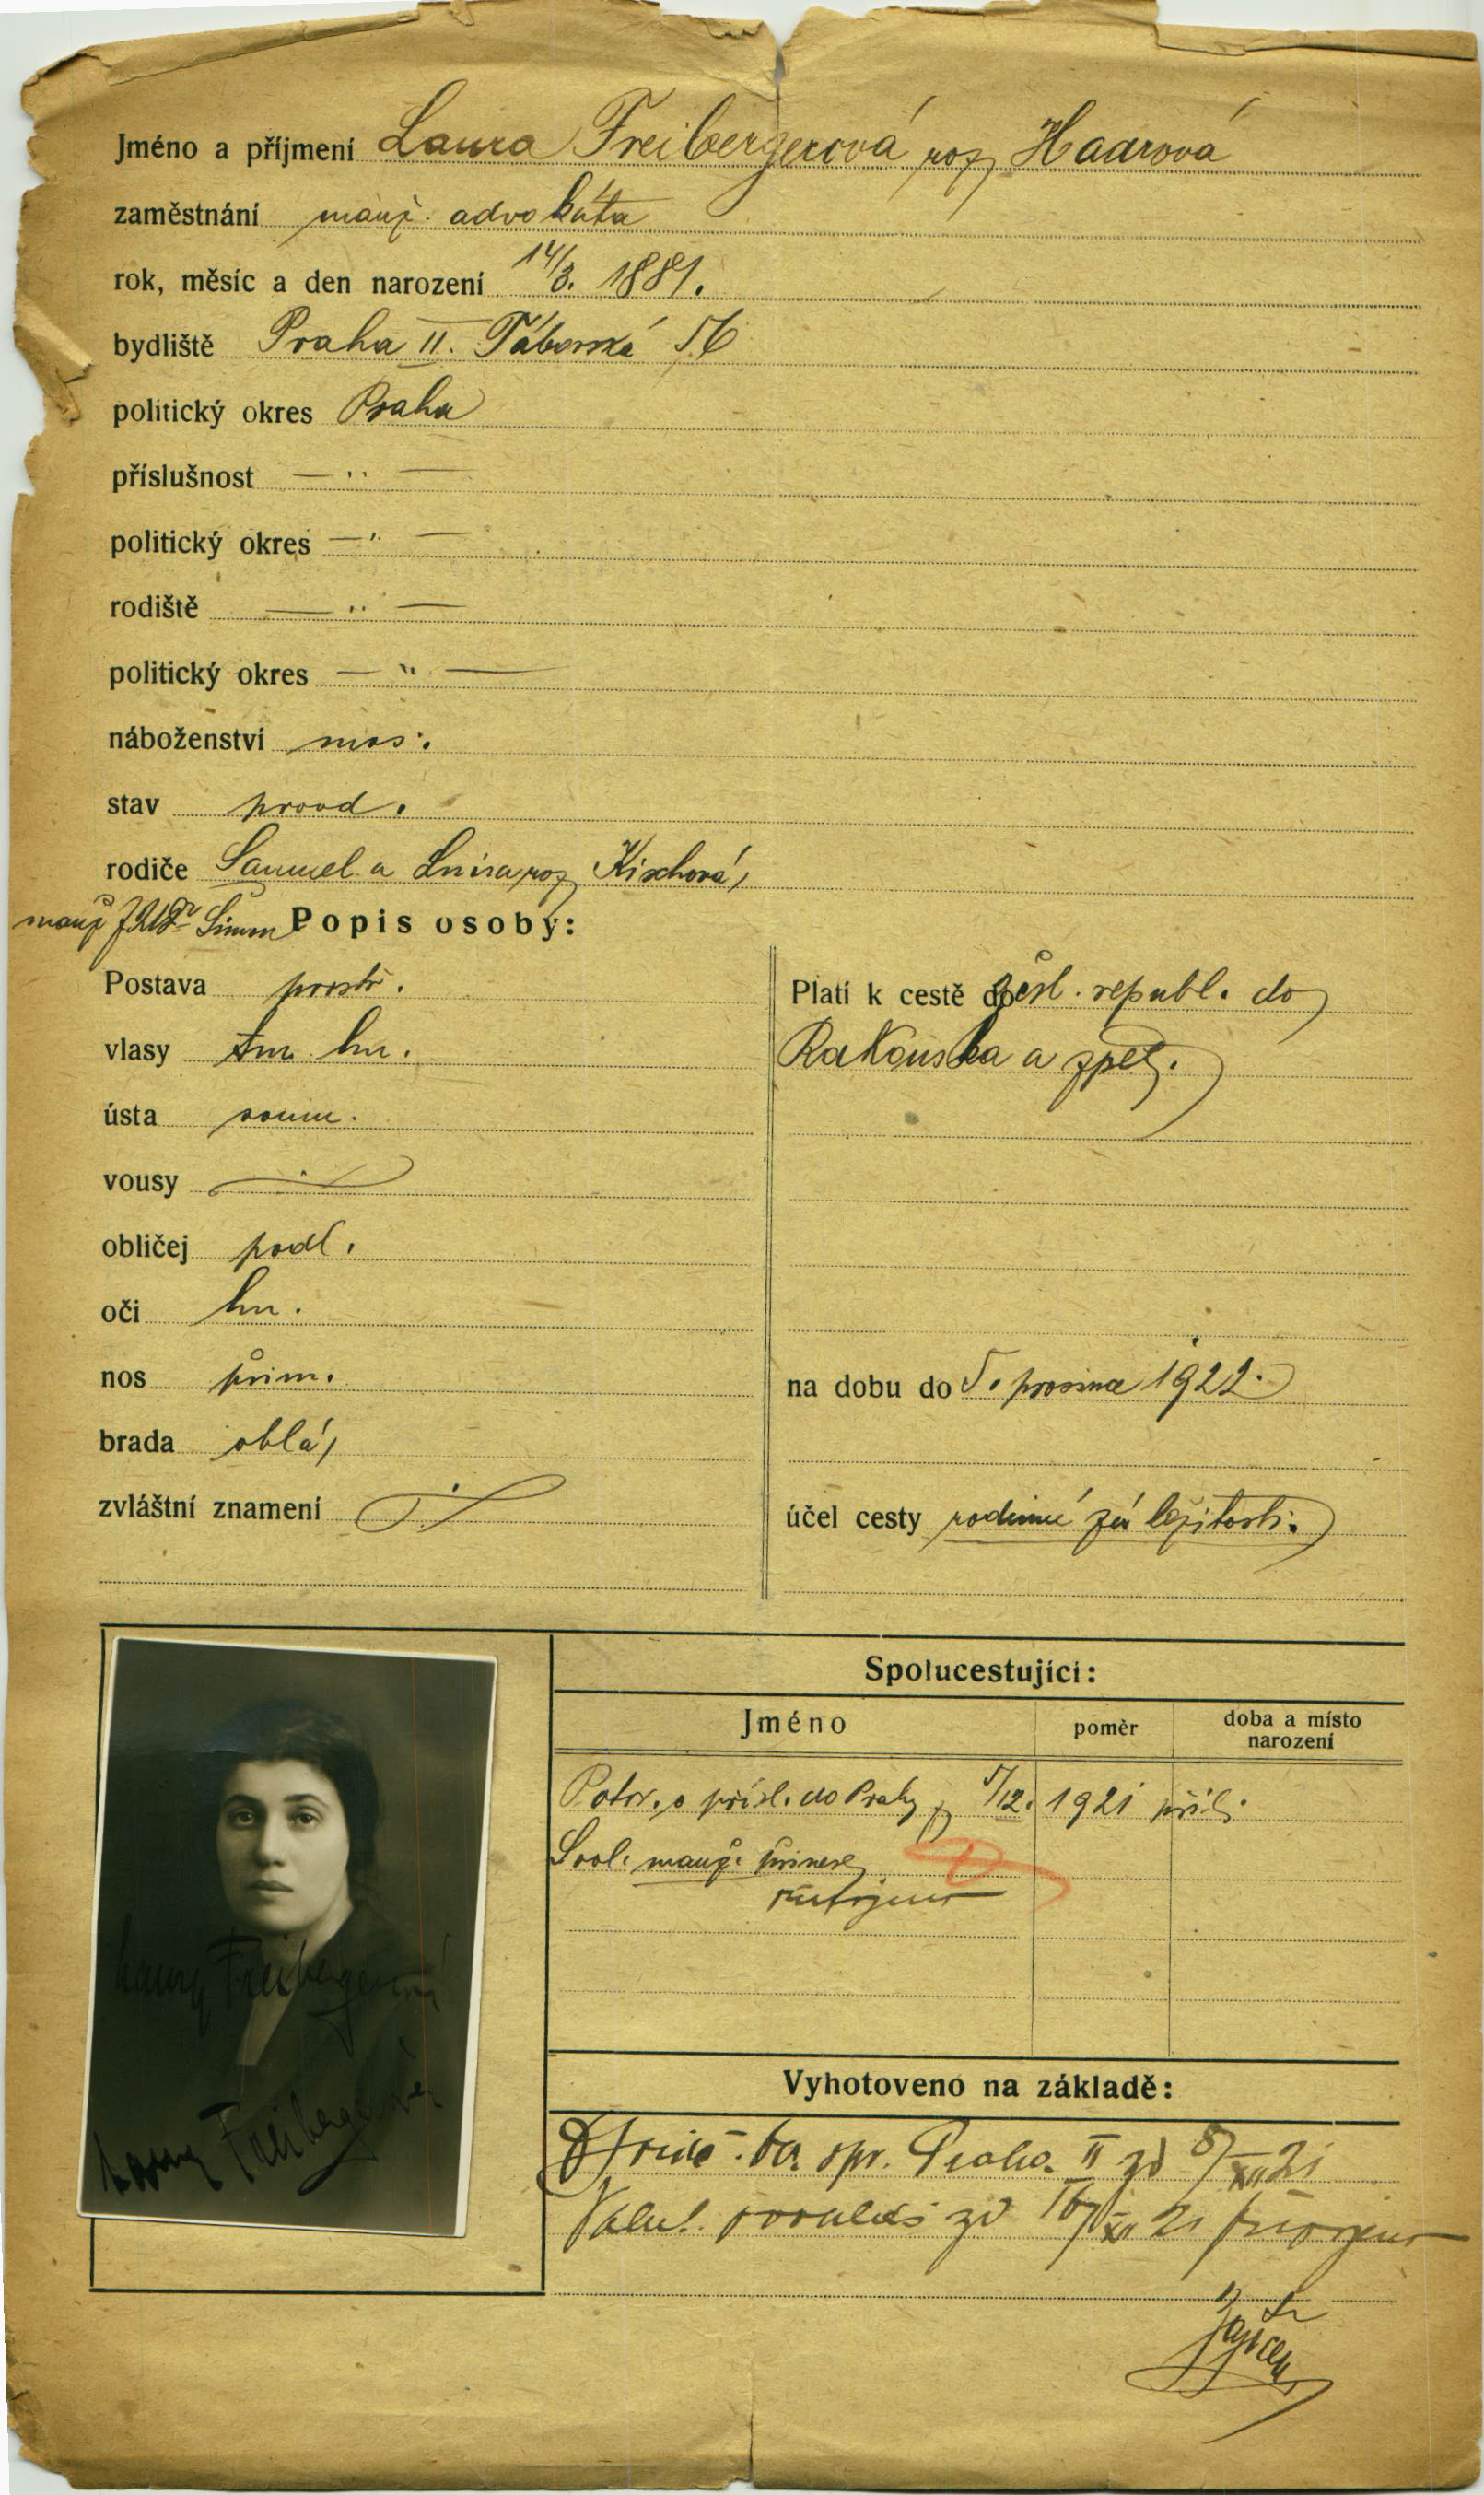 Jméno a příjmení Laura Freibergerová roz Haarová
zaměstnání manž. advokáta
rok, měsíc a den narození 14/3. 1881.
bydliště Praha II. Táborská 56
politický okres Praha
příslušnost — " —
politický okres — " —
rodiště — " —
politický okres — " —
náboženství mos.
stav provd.
rodiče Samuel a Luisa roz Kischová,
manž JUDr Šimon
Popis osoby:
Postava prostř.
vlasy tm. hn.
ústa soum.
vousy
obličej podl.
oči hn.
nos přim.
brada oblá,
zvláštní znamení
Platí k cestě do čsl. republ. do
Rakouska a zpět.
na dobu do 5. prosince 1922.
účel cesty rodinné záležitosti.
Spolucestující:
Jméno poměr doba a místo narození
Potvr. o přísl. do Prahy z 5/12. 1921 přil.
Svol. manž. přinese
Laura Freibergerová
Laura Freibergerová
Vyhotoveno na základě:
spr. Praha II zd 5/XII 21
zd 16/XII 21